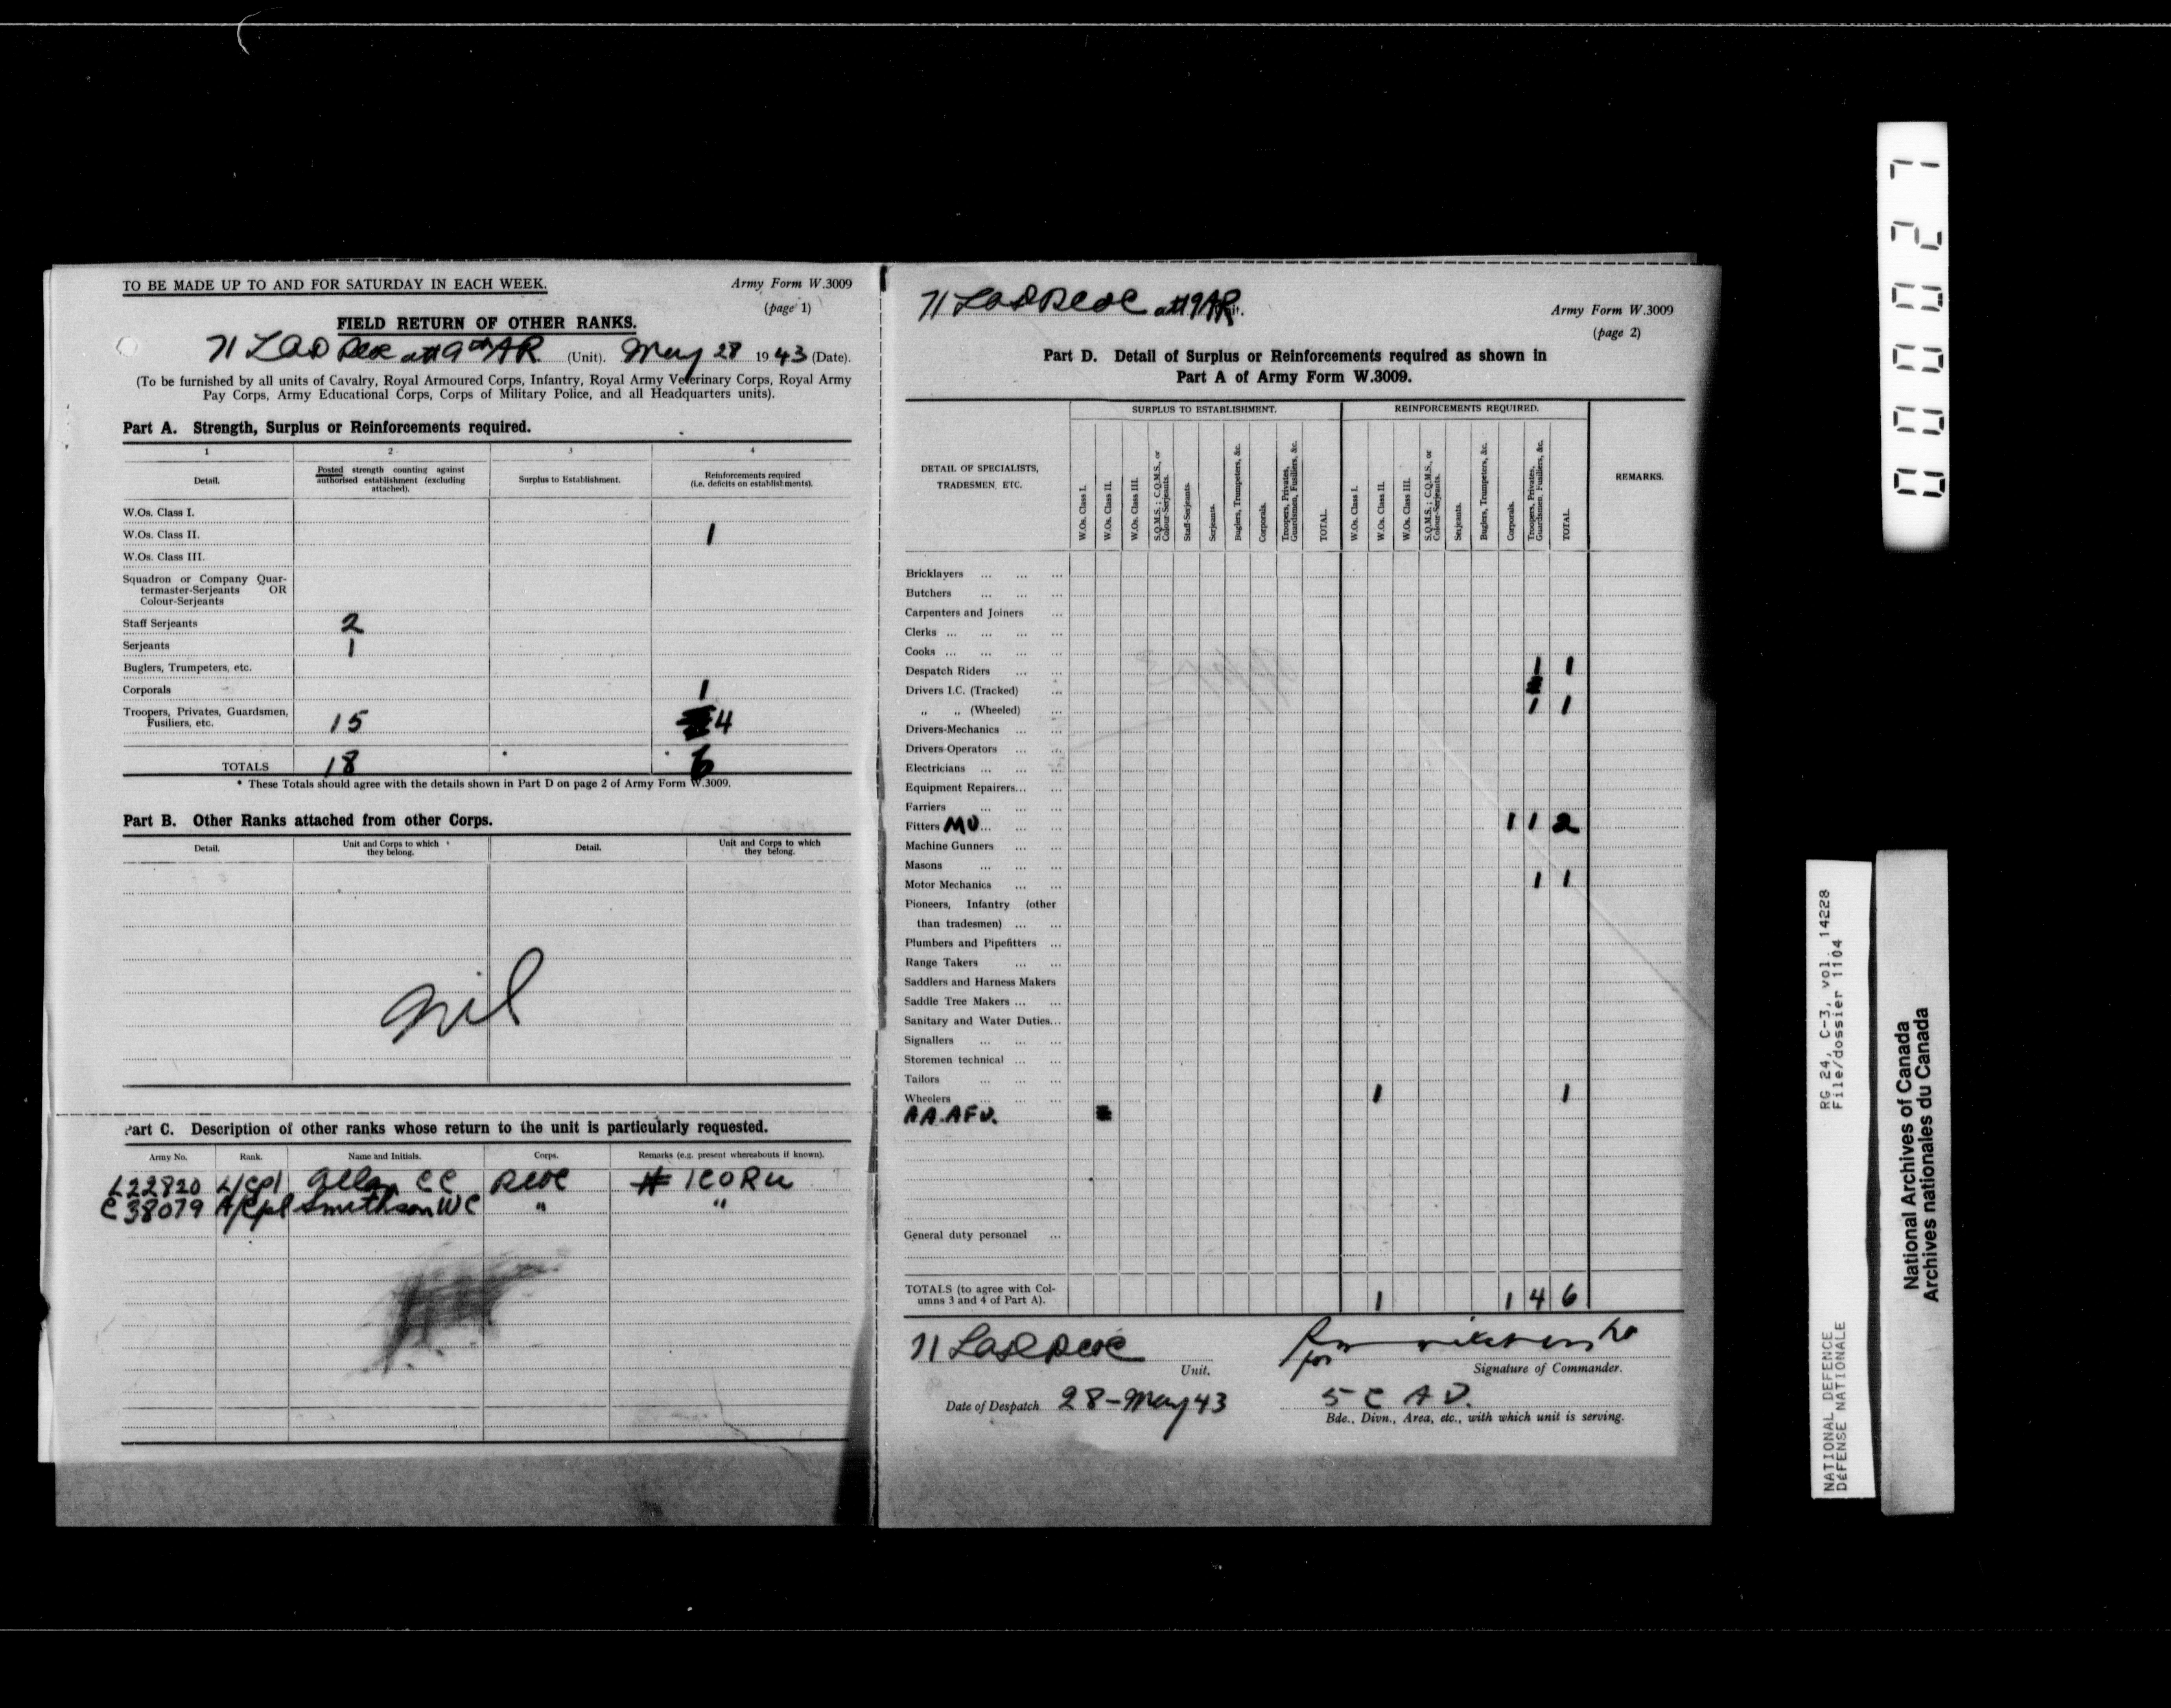 TO BE MADE UP TO AND FOR SATURDAY IN EACH WEEK.
Army Form W.3009
(page 1)
FIELD RETURN OF OTHER RANKS.
71 LAD RCOC att 9th AR (Unit). May 28 1943 (Date).
(To be furnished by all units of Cavalry, Royal Armoured Corps, Infantry, Royal Army Veterinary Corps, Royal Army
Pay Corps, Army Educational Corps, Corps of Military Police, and all Headquarters units).
Part A. Strength, Surplus or Reinforcements required.
1 2 3 4
Detail.
Posted strength counting against
authorised establishment (excluding
attached).
Surplus to Establishment.
Reinforcements required
(i.e. deficits on establishments).
W.Os. Class I.
W.Os. Class II. 1
W.Os. Class III.
Squadron or Company Quar-
termaster-Serjeants OR
Colour-Serjeants
Staff Serjeants 2
Serjeants 1
Buglers, Trumpeters, etc.
Corporals 1
Troopers, Privates, Guardsmen,
Fusiliers, etc. 15 4
TOTALS 18 * * 6
* These Totals should agree with the details shown in Part D on page 2 of Army Form W.3009.
Part B. Other Ranks attached from other Corps.
Detail.
Unit and Corps to which
they belong.
Detail.
Unit and Corps to which
they belong.
nil
Part C. Description of other ranks whose return to the unit is particularly requested.
Army No. Rank. Name and Initials. Corps. Remarks (e.g. present whereabouts if known).
L22820 L/Cpl Allan CC RCOC # 1 CORU
C38079 A/Cpl Smithson WC " "
71 LAD RCOC att 9 AR
Army Form W.3009
(page 2)
Part D. Detail of Surplus or Reinforcements required as shown in
Part A of Army Form W.3009.
DETAIL OF SPECIALISTS,
TRADESMEN, ETC.
SURPLUS TO ESTABLISHMENT.
W.Os. Class I.
W.Os. Class II.
W.Os. Class III.
S.Q.M.S.; C.Q.M.S., or
Colour-Serjeants.
Staff-Serjeants.
Serjeants.
Buglers, Trumpeters, &c.
Corporals.
Troopers, Privates,
Guardsmen, Fusiliers, &c.
TOTAL.
REINFORCEMENTS REQUIRED.
W.Os. Class I.
W.Os. Class II.
W.Os. Class III.
S.Q.M.S.; C.Q.M.S., or
Colour-Serjeants.
Serjeants.
Buglers, Trumpeters, &c.
Corporals.
Troopers, Privates,
Guardsmen, Fusiliers, &c.
TOTAL.
REMARKS.
Bricklayers ... ... ...
Butchers ... ... ...
Carpenters and Joiners ...
Clerks ... ... ... ...
Cooks ... ... ... ...
Despatch Riders ... ... 1 1
Drivers I.C. (Tracked) ...
" " (Wheeled) ... 1 1
Drivers-Mechanics ... ...
Drivers Operators ... ...
Electricians ... ... ...
Equipment Repairers... ...
Farriers ... ... ...
Fitters MV... ... ... 1 1 2
Machine Gunners ... ...
Masons ... ... ...
Motor Mechanics ... ... 1 1
Pioneers, Infantry (other
than tradesmen) ... ...
Plumbers and Pipefitters ...
Range Takers ... ...
Saddlers and Harness Makers
Saddle Tree Makers ... ...
Sanitary and Water Duties...
Signallers ... ... ...
Storemen technical ... ...
Tailors ... ... ...
Wheelers ... ... ... 1 1
A.A. AFV.
General duty personnel ...
TOTALS (to agree with Col-
umns 3 and 4 of Part A). 1 1 4 6
71 LAD RCOC
Unit.
for
Signature of Commander.
Date of Despatch 28-May 43
5 C A D.
Bde., Divn., Area, etc., with which unit is serving.
000027
RG 24, C-3, vol. 14228
File/dossier 1104
NATIONAL DEFENCE
DÉFENSE NATIONALE
National Archives of Canada
Archives nationales du Canada